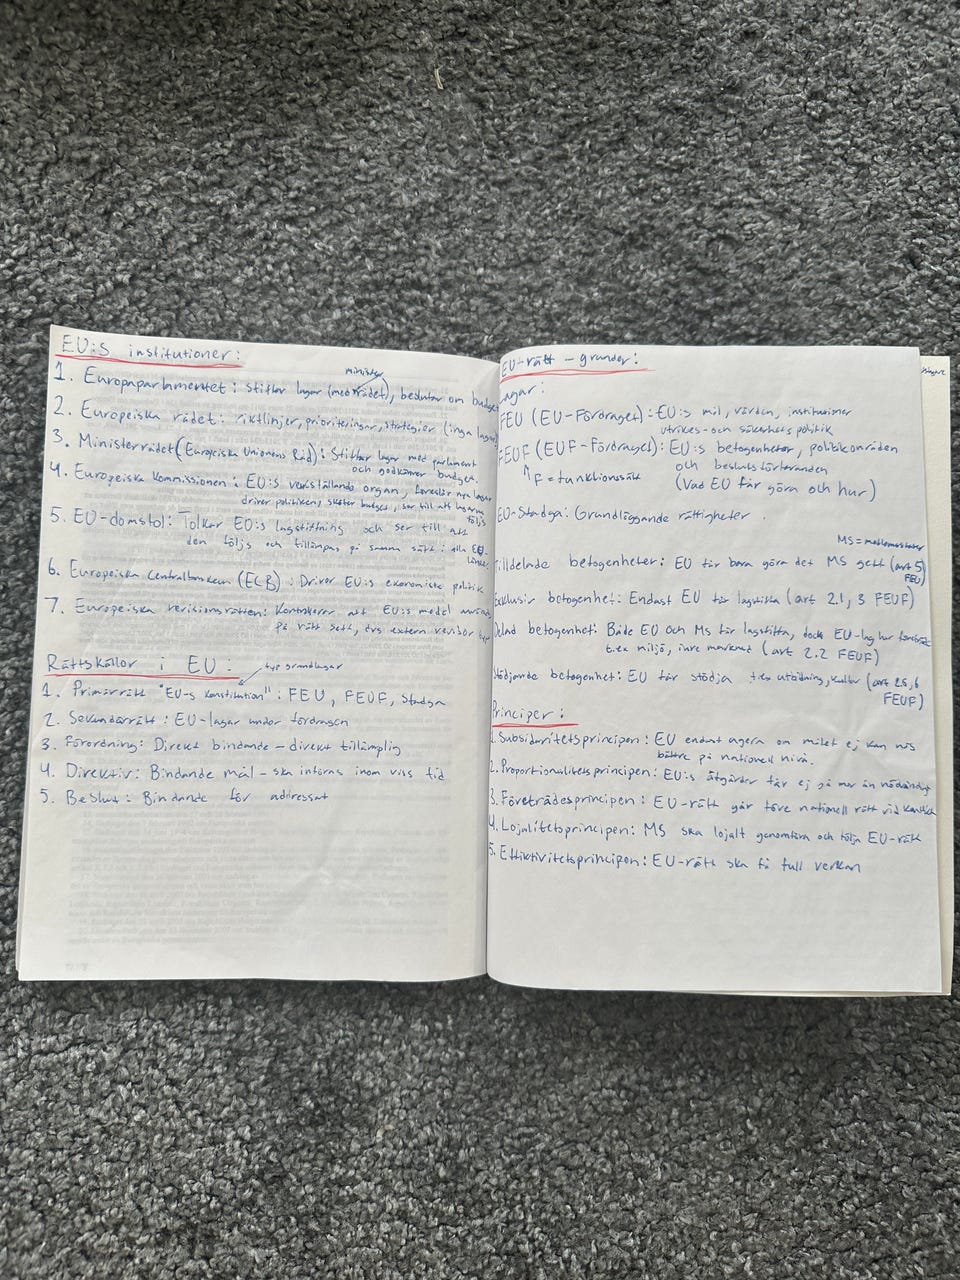 EU:s institutioner:
minister
1. Europaparlamentet: stiftar lagar (med rådet), beslutar om budget
2. Europeiska rådet: riktlinjer, prioriteringar, strategier (inga lagar
3. Ministerrådet (Europeiska Unionens Råd): Stiftar lagar med parlament
och godkänner budget.
4. Europeiska Kommissionen: EU:s verkställande organ, föreslår nya lagar
driver politiken, sköter budget, ser till att lagarna
följs
5. EU-domstol: Tolkar EU:s lagstiftning och ser till att
den följs och tillämpas på samma sätt i alla EU-
länder
6. Europeiska Centralbanken (ECB): Driver EU:s ekonomiska politik
7. Europeiska revisionsrätten: Kontrollerar att EU:s medel används
på rätt sätt, dvs extern revisor typ
Rättskällor i EU:
typ grundlagar
1. Primärrätt "EU-s konstitution": FEU, FEUF, Stadga
2. Sekundärrätt: EU-lagar under fördragen
3. Förordning: Direkt bindande - direkt tillämplig
4. Direktiv: Bindande mål - ska införas inom viss tid
5. Beslut: Bindande för adressat
EU-rätt - grunder:
Lagar:
FEU (EU-Fördraget): EU:s mål, värden, institutioner
utrikes- och säkerhetspolitik
FEUF (EUF-Fördraget): EU:s befogenheter, politikområden
och beslutsförfaranden
F = funktionssätt
(Vad EU får göra och hur)
EU-Stadga: Grundläggande rättigheter.
MS = medlemsstater
Tilldelade befogenheter: EU får bara göra det MS gett (art 5)
FEU
Exklusiv befogenhet: Endast EU får lagstifta (art 2.1, 3 FEUF)
Delad befogenhet: Både EU och MS får lagstifta, dock EU-lag har företräde
t.ex miljö, inre marknad (art 2.2 FEUF)
Stödjande befogenhet: EU får stödja t.ex utbildning, kultur (art 2.5, 6
FEUF)
Principer:
1. Subsidaritetsprincipen: EU endast agera om målet ej kan nås
bättre på nationell nivå.
2. Proportionalitetsprincipen: EU:s åtgärder får ej gå mer än nödvändigt
3. Företrädesprincipen: EU-rätt går före nationell rätt vid konflikt
4. Lojalitetsprincipen: MS ska lojalt genomföra och följa EU-rätt
5. Effektivitetsprincipen: EU-rätt ska få full verkan